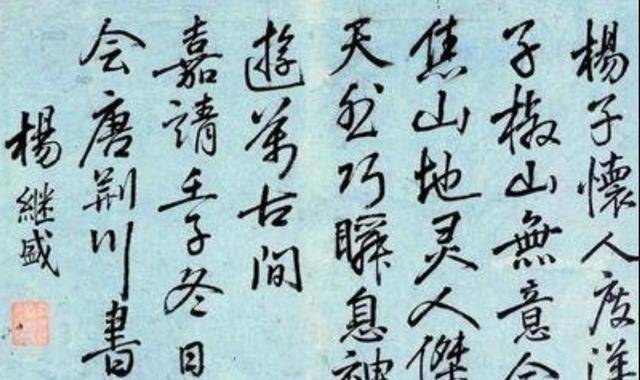 楊子懷人度
子椒山無意
焦山地灵人傑
天然巧瞬息神
遊萬古間
嘉請壬子冬日
会唐荆川書
楊継盛